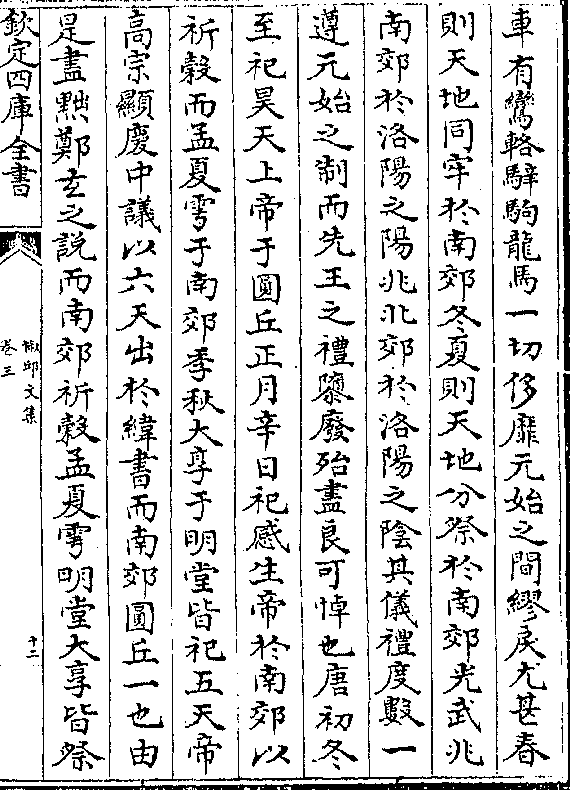 車有鸞輅騂駒龍馬一切侈靡元始之間繆戾尤甚春
則天地同牢於南郊冬夏則天地分祭於南郊光武兆
南郊於洛陽之陽兆北郊於洛陽之陰其儀禮度數一
遵元始之制而先王之禮隳廢殆盡良可悼也唐初冬
至祀昊天上帝于圓丘正月辛日祀感生帝於南郊以
祈穀而孟夏雩于南郊季秋大享于明堂皆祀五天帝
高宗顯慶中議以六天出於緯書而南郊圓丘一也由
是盡黜鄭玄之說而南郊祈穀孟夏雩明堂大享皆祭
欽定四庫全書
邱文集
卷三
十二